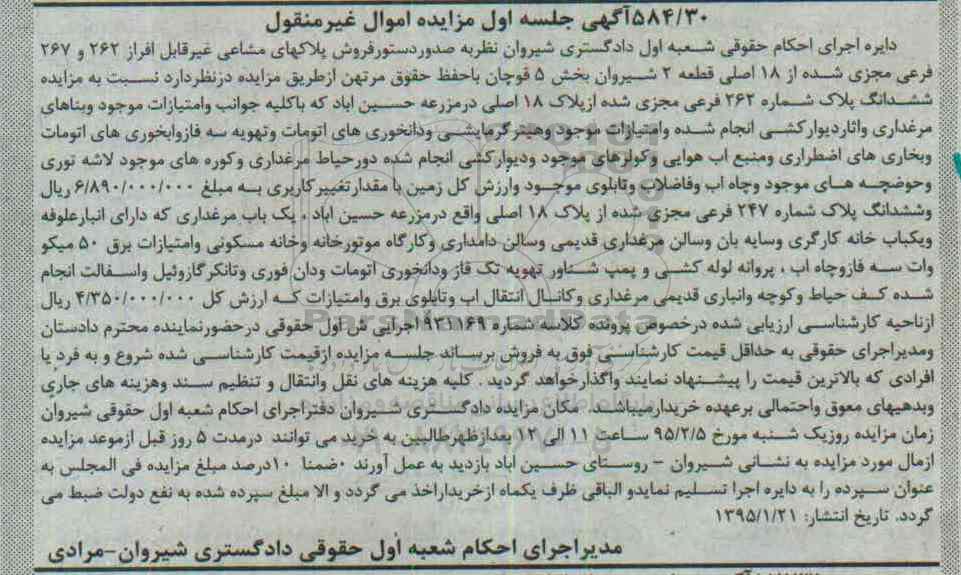 ۵۸۴/۳۰آگهی جلسه اول مزایده اموال غیرمنقول
دایره اجرای احکام حقوقی شعبه اول دادگستری شیروان نظربه صدوردستورفروش پلاکهای مشاعی غیرقابل افراز ۲۶۲ و ۲۶۷
فرعی مجزی شده از ۱۸ اصلی قطعه ۲ شیروان بخش ۵ قوچان باحفظ حقوق مرتهن ازطریق مزایده درنظردارد نسبت به مزایده
ششدانگ پلاک شماره ۲۶۲ فرعی مجزی شده ازپلاک ۱۸ اصلی درمزرعه حسین اباد که باکلیه جوانب وامتیازات موجود وبناهای
مرغداری واثاردیوارکشی انجام شده وامتیازات موجود وهیترگرمایشی ودانخوری های اتومات وتهویه سه فازوابخوری های اتومات
وبخاری های اضطراری ومنبع اب هوایی وکولرهای موجود ودیوارکشی انجام شده دورحیاط مرغداری وکوره های موجود لاشه توری
وحوضچه های موجود وچاه اب وفاضلاب وتابلوی موجود وارزش کل زمین با مقدارتغییرکاربری به مبلغ ۶/۸۹۰/۰۰۰/۰۰۰ ریال
وششدانگ پلاک شماره ۲۴۷ فرعی مجزی شده از پلاک ۱۸ اصلی واقع درمزرعه حسین اباد ، یک باب مرغداری که دارای انبارعلوفه
ویکباب خانه کارگری وسایه بان وسالن مرغداری قدیمی وسالن دامداری وکارگاه موتورخانه وخانه مسکونی وامتیازات برق ۵۰ میکو
وات سه فازوچاه اب ، پروانه لوله کشی و پمپ شناور تهویه تک فاز ودانخوری اتومات ودان فوری وتانکرگازوئیل واسفالت انجام
شده کف حیاط وکوچه وانباری قدیمی مرغداری وکانال انتقال اب وتابلوی برق وامتیازات که ارزش کل ۴/۳۵۰/۰۰۰/۰۰۰ ریال
ازناحیه کارشناسی ارزیابی شده درخصوص پرونده کلاسه شماره ۹۳۱۱۶۹اجرایی ش اول حقوقی درحضورنماینده محترم دادستان
ومدیراجرای حقوقی به حداقل قیمت کارشناسی فوق به فروش برساند جلسه مزایده ازقیمت کارشناسی شده شروع و به فرد یا
افرادی که بالاترین قیمت را پیشنهاد نمایند واگذارخواهد گردید . کلیه هزینه های نقل وانتقال و تنظیم سند وهزینه های جاری
وبدهیهای معوق واحتمالی برعهده خریدارمیباشد. مکان مزایده دادگستری شیروان دفتراجرای احکام شعبه اول حقوقی شیروان
زمان مزایده روزیک شنبه مورخ ۹۵/۲/۵ ساعت ۱۱ الی ۱۲ بعدازظهرطالبین به خرید می توانند درمدت ۵ روز قبل ازموعد مزایده
ازمال مورد مزایده به نشانی شیروان – روستای حسین اباد بازدید به عمل آورند ۰ضمنا ۱۰درصد مبلغ مزایده فی المجلس به
عنوان سپرده را به دایره اجرا تسلیم نمایدو الباقی ظرف یکماه ازخریداراخذ می گردد و الا مبلغ سپرده شده به نفع دولت ضبط می
گردد. تاریخ انتشار: ۱۳۹۵/۱/۲۱
مدیراجرای احکام شعبه اول حقوقی دادگستری شیروان-مرادی